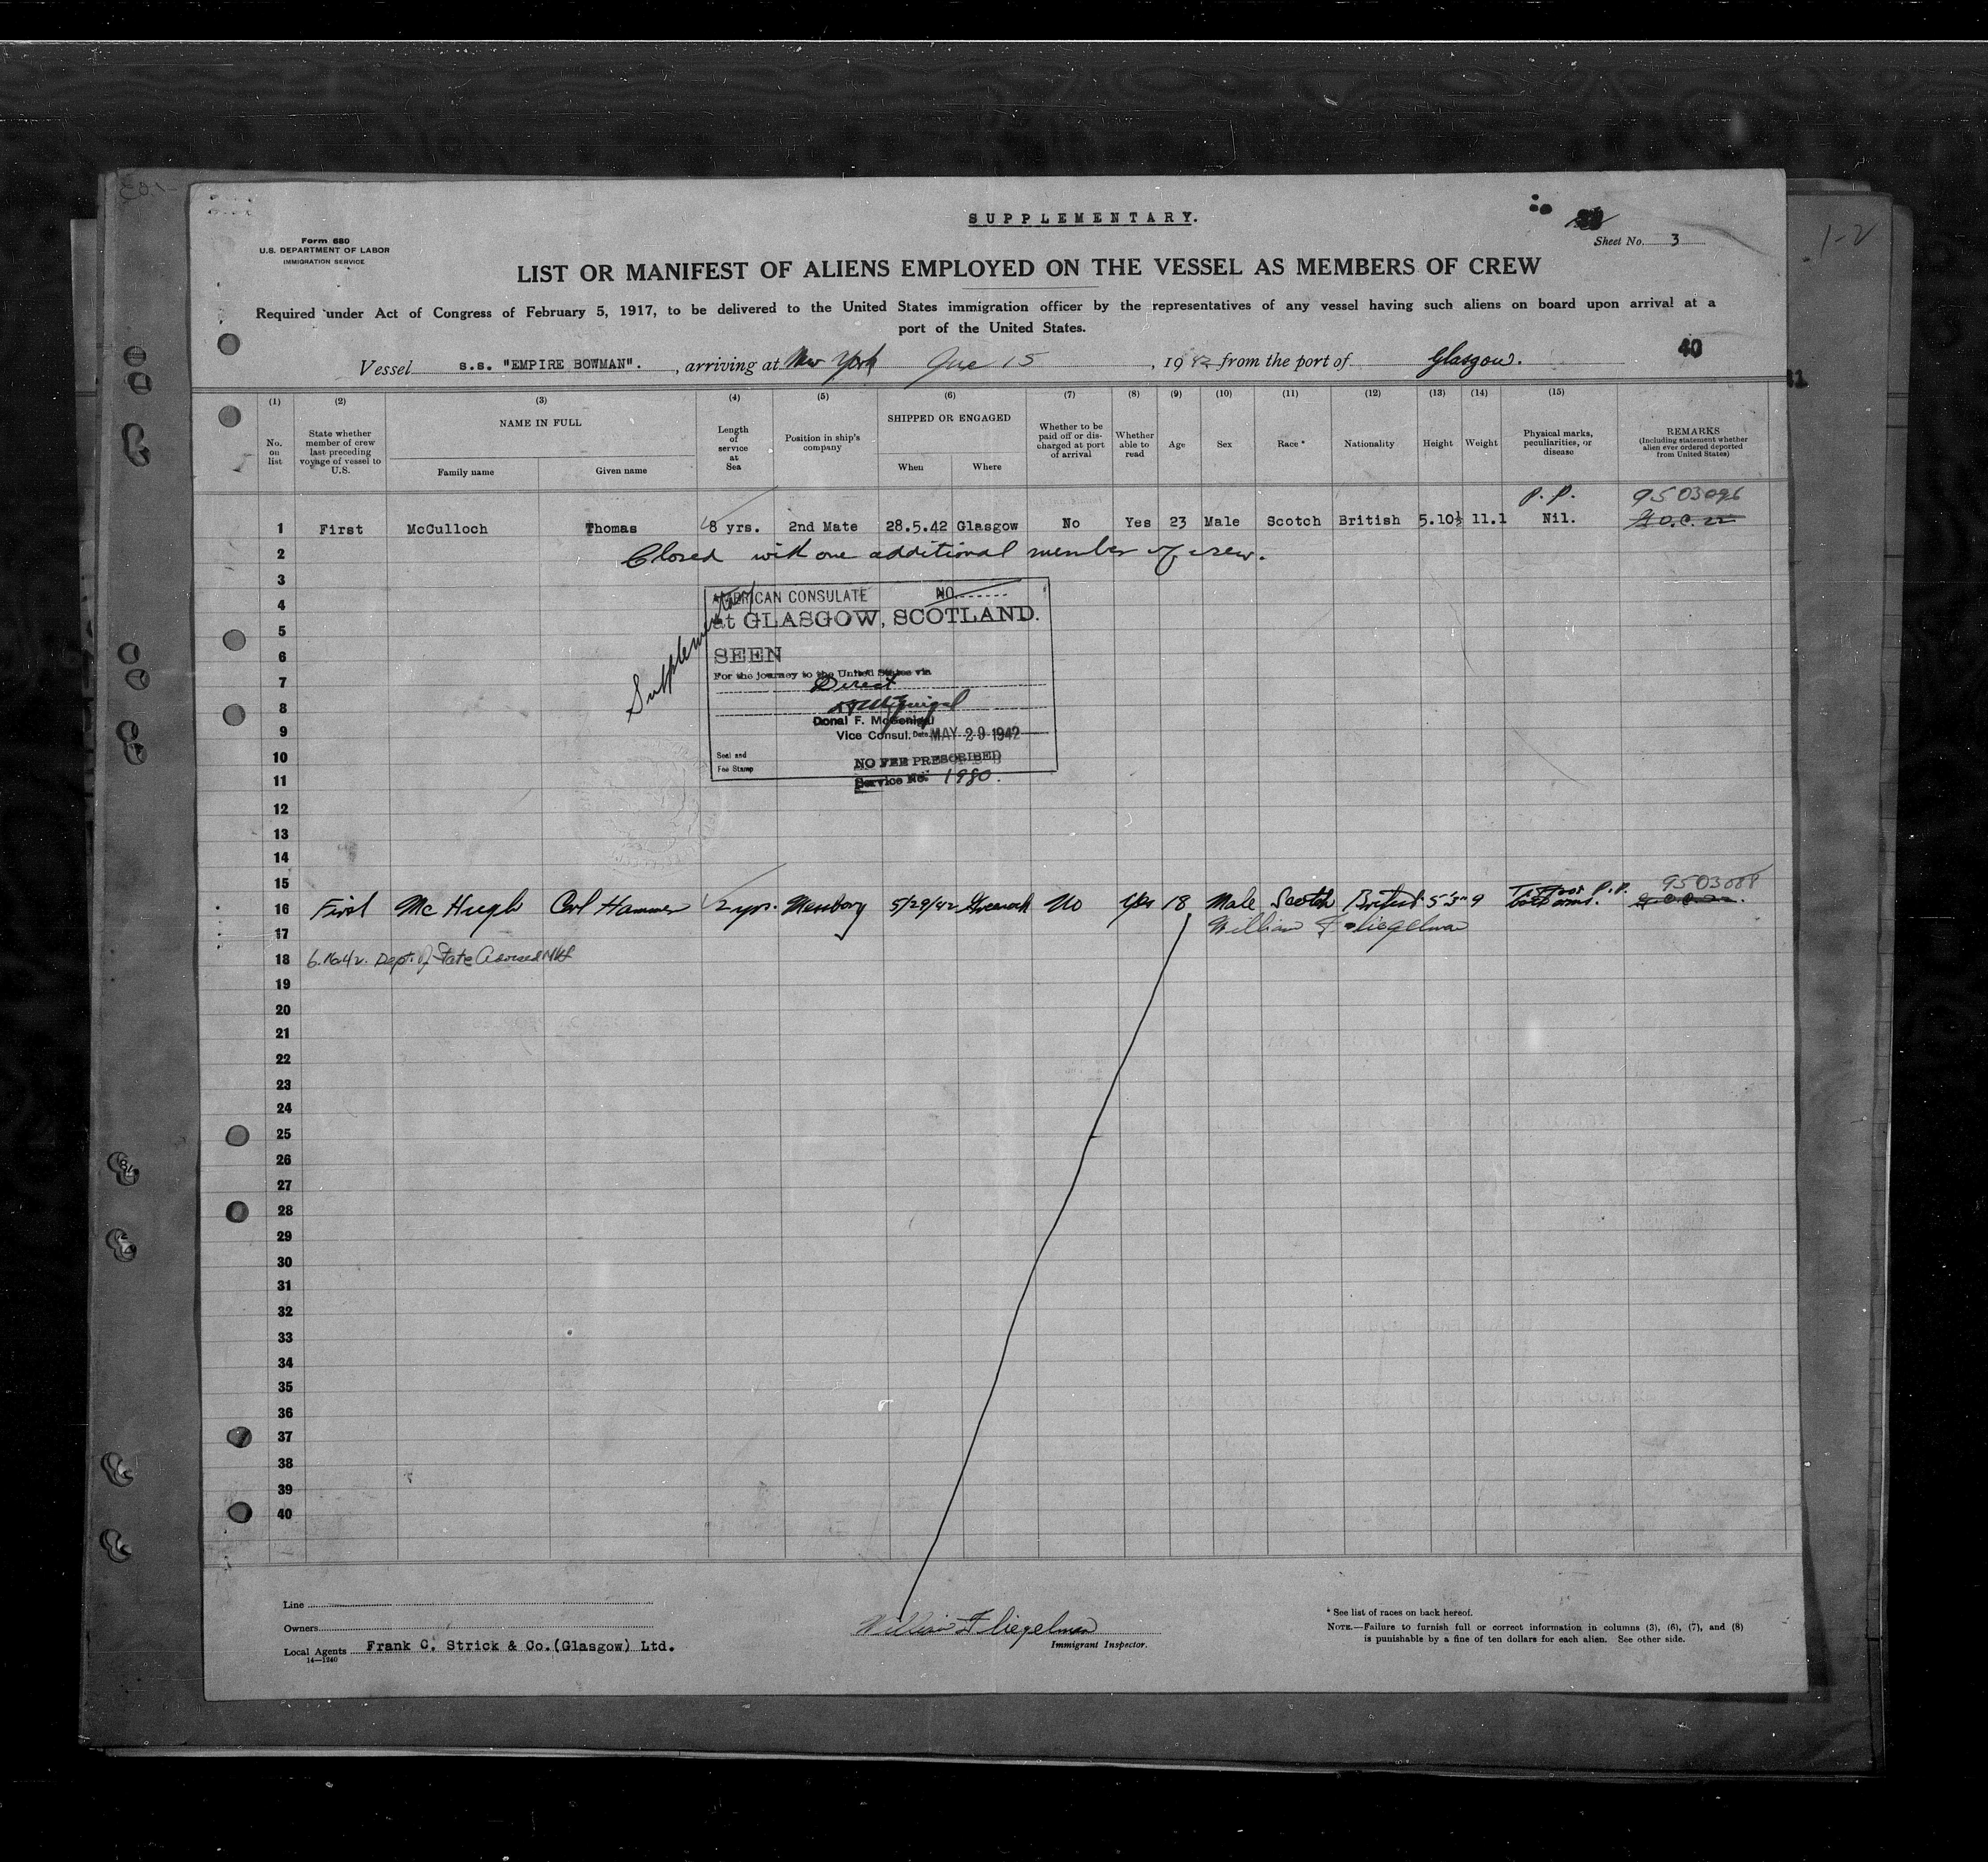 SUPPLEMENTARY.
Form 680
U.S. DEPARTMENT OF LABOR
IMMIGRATION SERVICE
Sheet No. 3
1-2
LIST OR MANIFEST OF ALIENS EMPLOYED ON THE VESSEL AS MEMBERS OF CREW
Required under Act of Congress of February 5, 1917, to be delivered to the United States immigration officer by the representatives of any vessel having such aliens on board upon arrival at a
port of the United States.
40
Vessel s.s. "EMPIRE BOWMAN". , arriving at New York June 15 , 1942 from the port of Glasgow.
(1) (2) (3) (4) (5) (6) (7) (8) (9) (10) (11) (12) (13) (14) (15)
No. on list
State whether member of crew last preceding voyage of vessel to U.S.
NAME IN FULL
Family name Given name
Length of service at Sea
Position in ship's company
SHIPPED OR ENGAGED
When Where
Whether to be paid off or discharged at port of arrival
Whether able to read
Age
Sex
Race *
Nationality
Height
Weight
Physical marks, peculiarities, or disease
REMARKS
(Including statement whether alien ever ordered deported from United States)
P.P. 9503096
1 First McCulloch Thomas 8 yrs. 2nd Mate 28.5.42 Glasgow No Yes 23 Male Scotch British 5.10½ 11.1 Nil.
2 Closed with one additional member of crew.
3
4
5
6
7
8
9
10
11
12
13
14
15
Supplementary
AMERICAN CONSULATE NO.
at GLASGOW, SCOTLAND.
SEEN
For the journey to the United States via
Direct
Donal F. McGonigal
Vice Consul. Date MAY 29 1942
Seal and
Fee Stamp
NO FEE PRESCRIBED
Service No. 1980.
16 First McHugh 2 yrs. 5/29/42 Greenock No Yes 18 Male Scotch British 5'3" 9 P.P. 9503088
17 William Fliegelman
18 6.16.42. Dept. of State Advised
19
20
21
22
23
24
25
26
27
28
29
30
31
32
33
34
35
36
37
38
39
40
Line
Owners
Local Agents Frank C. Strick & Co.(Glasgow) Ltd.
14—1240
William Fliegelman
Immigrant Inspector.
* See list of races on back hereof.
NOTE.—Failure to furnish full or correct information in columns (3), (6), (7), and (8)
is punishable by a fine of ten dollars for each alien. See other side.